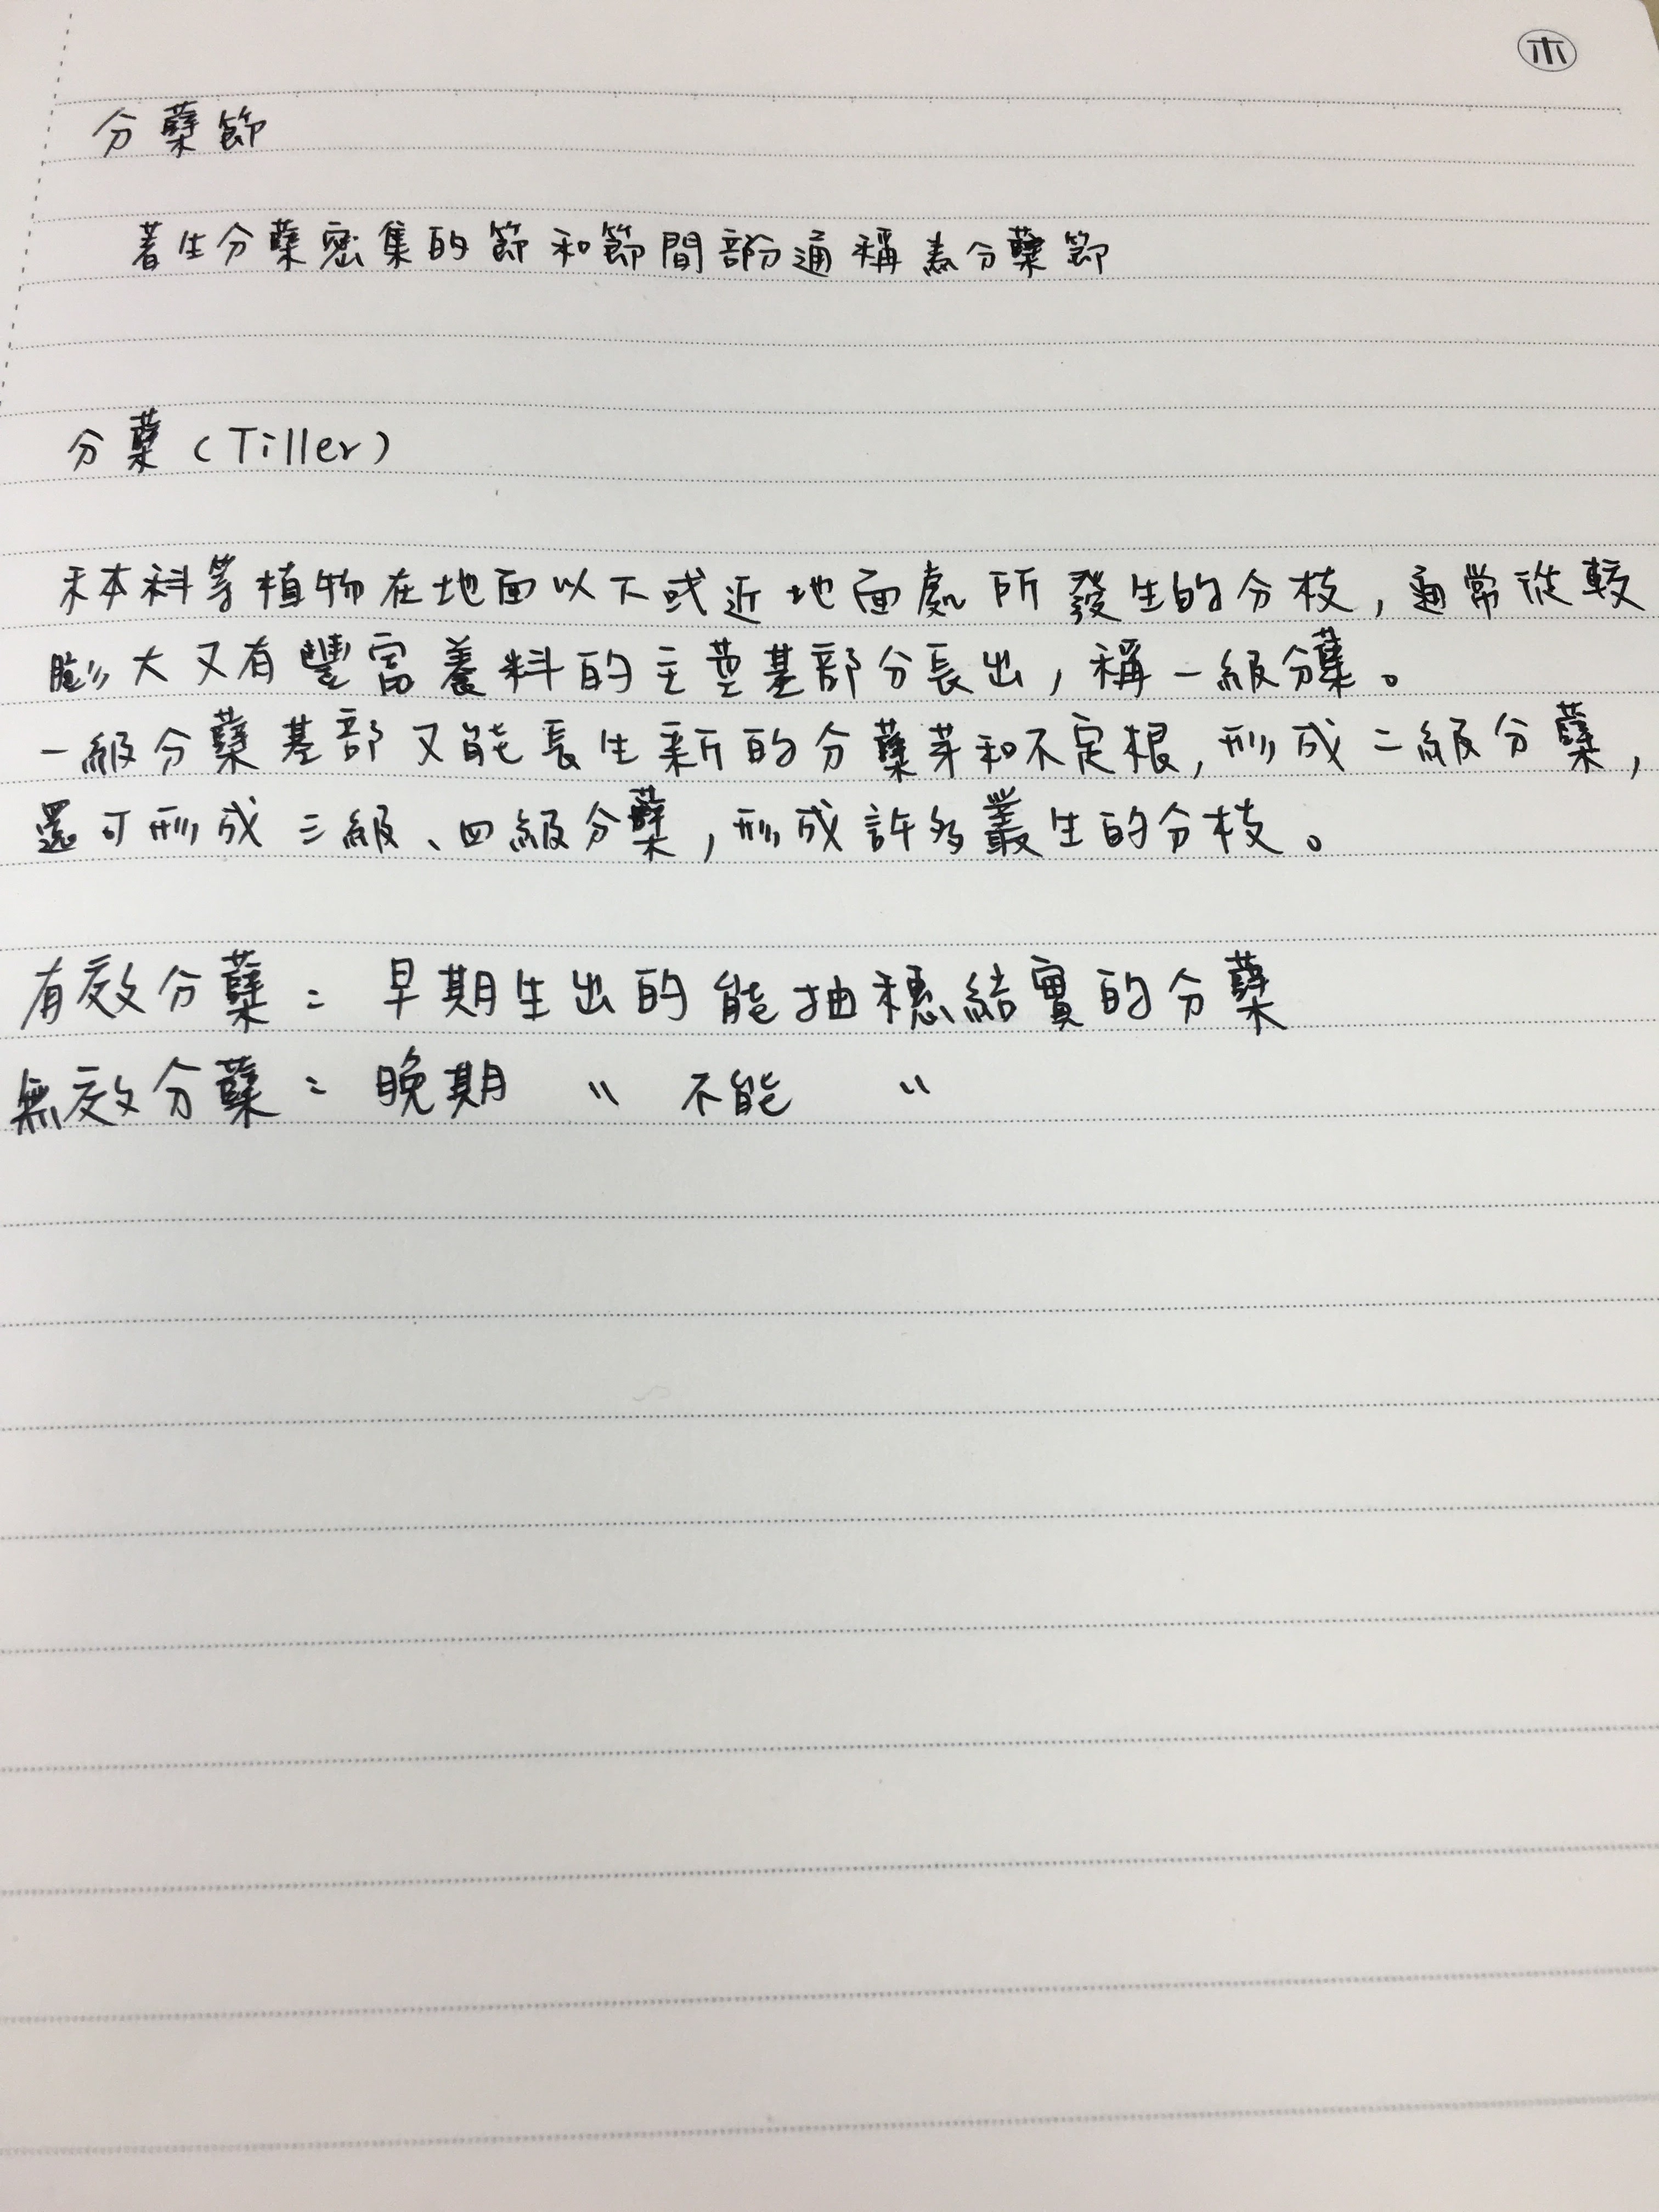 木
分蘗節
著生分蘗密集的節和節間部分通稱為分蘗節
分蘗（Tiller）
禾本科等植物在地面以下或近地面處所發生的分枝，通常從較
膨大又有豐富養料的主莖基部分長出，稱一級分蘗。
一級分蘗基部又能長生新的分蘗芽和不定根，形成二級分蘗，
還可形成三級、四級分蘗，形成許多叢生的分枝。
有效分蘗：早期生出的能抽穗結實的分蘗
無效分蘗：晚期 〃 不能 〃